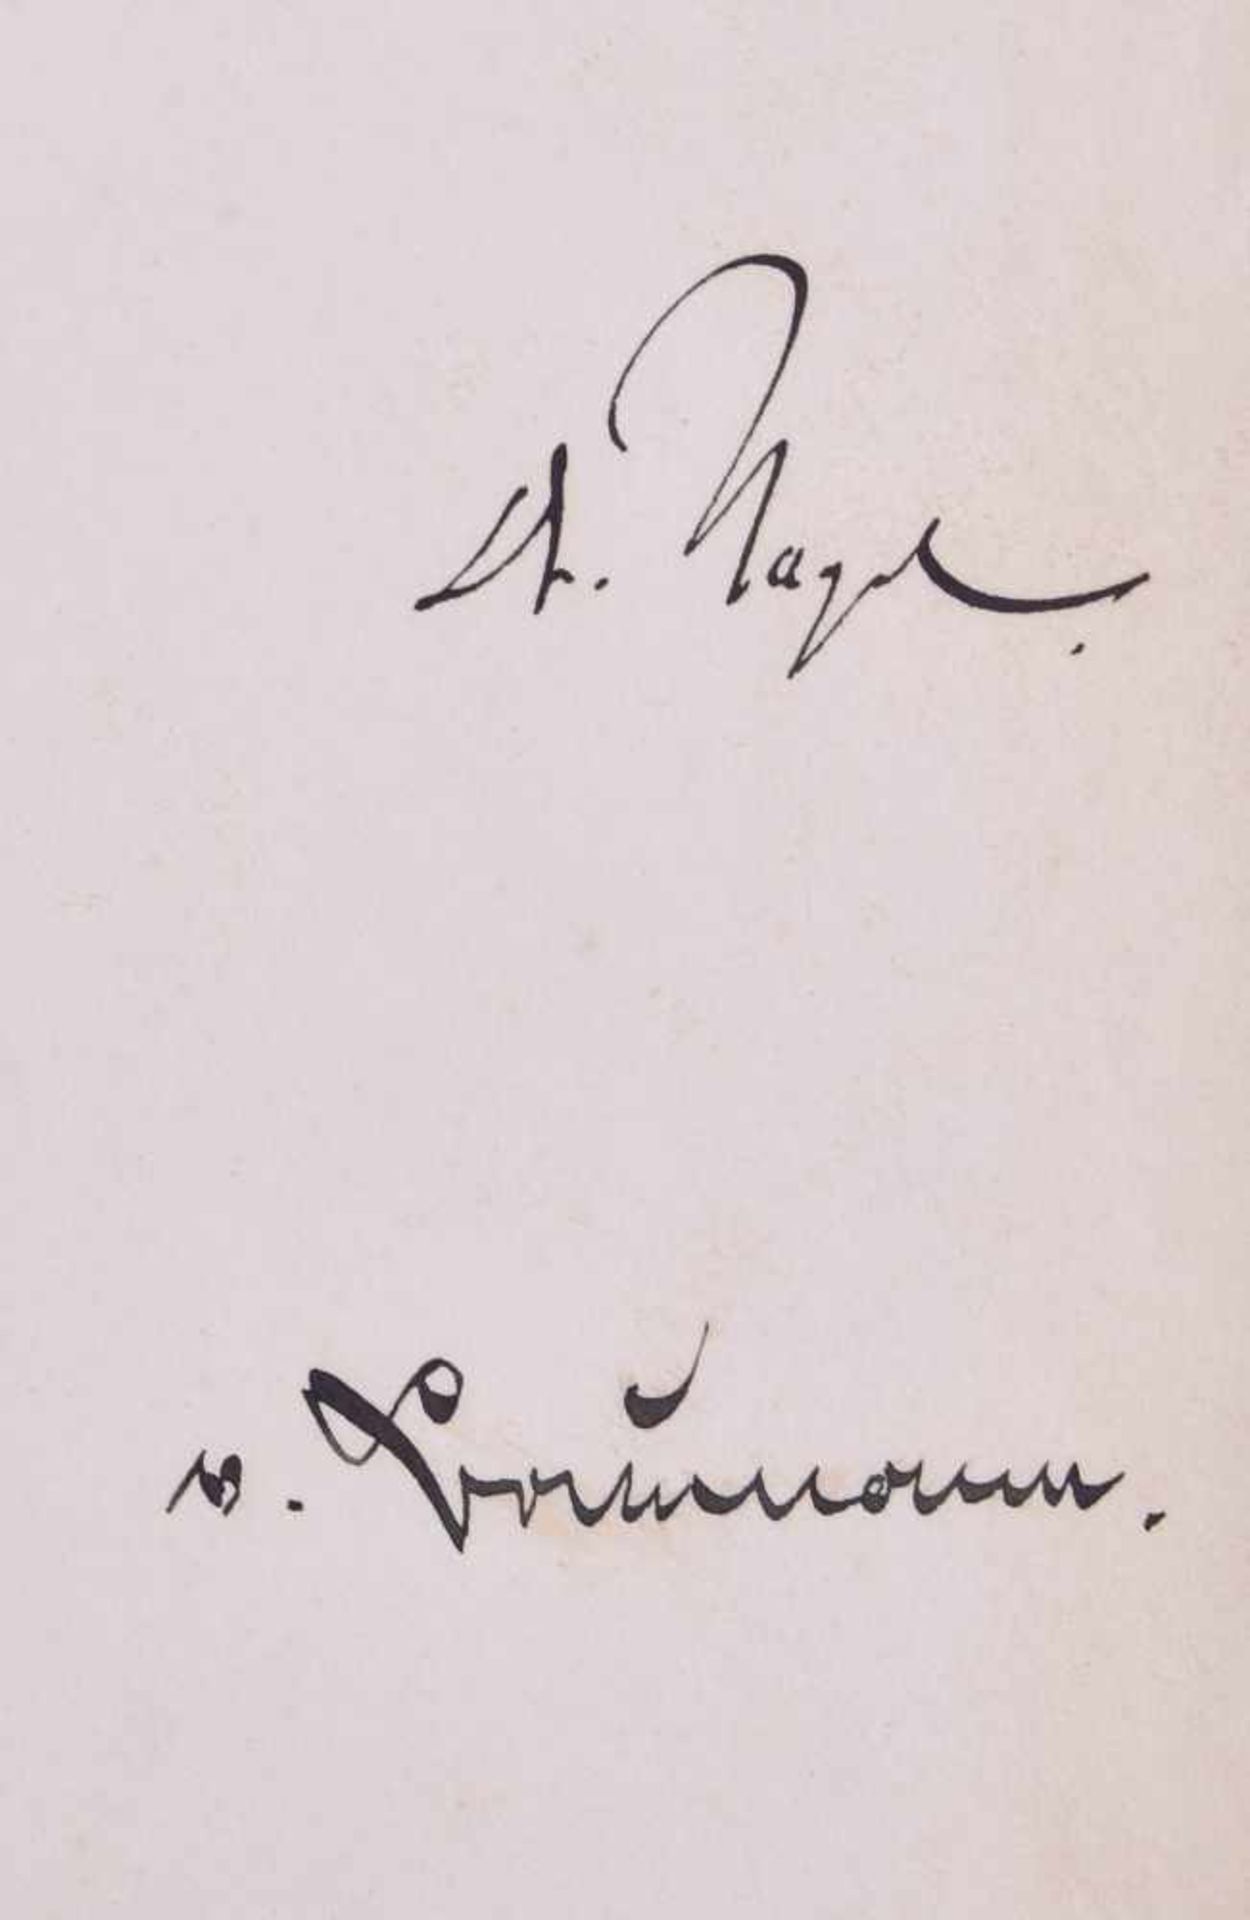 A. Nagel.
v. Braumann.